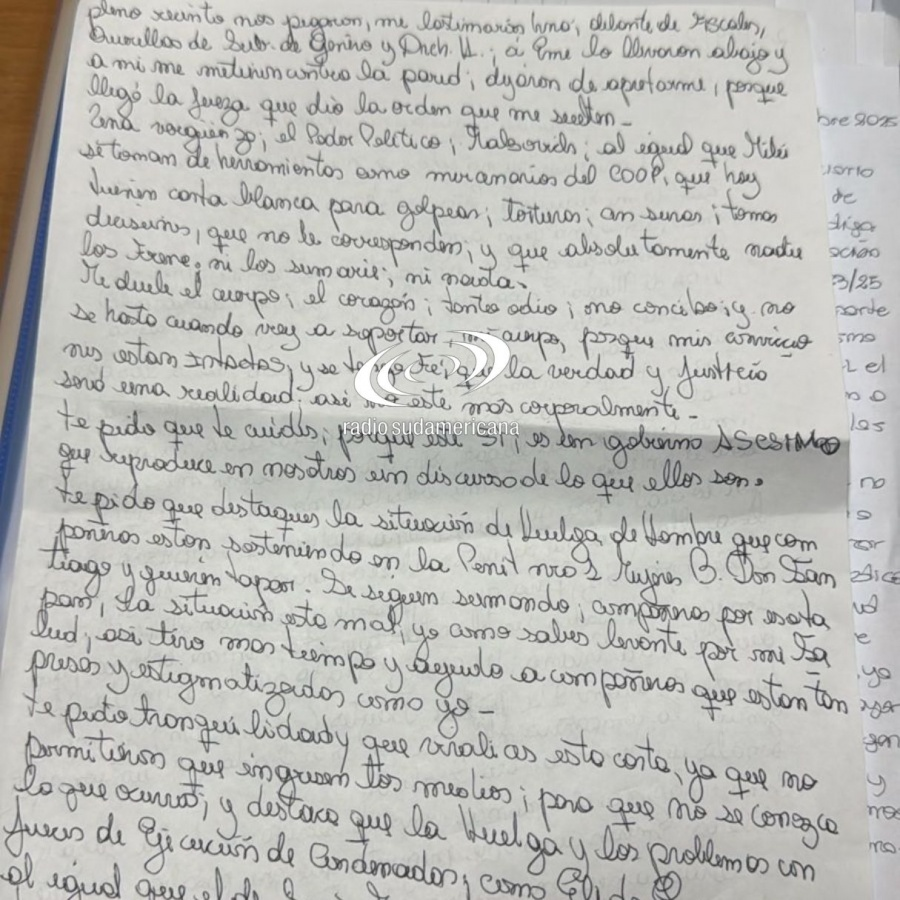 pleno recinto nos pegaron, me lastimaron hno, delante de Fiscales,
Querellas de Sub. de Género y Drch. H.; a Eme lo llevaron abajo y
a mi me metieron contra la pared; dejaron de apretarme, porque
llegó la jueza que dio la orden que me suelten -
Una vergüenza; el Poder Político; al igual que Milei
se toman de herramientas como mercenarios del COOP, que hoy
tienen carta blanca para golpear; torturar; tomar
decisiones, que no le corresponden; y que absolutamente nadie
los frene, ni los sumarie; ni nada.
Me duele el cuerpo; el corazón; tanto odio; no concibo; y no
se hasta cuando voy a soportar mi cuerpo, porque mis conviccio
nes estan Intactas, y se la verdad y Justicia
será una realidad; asi no este mas corporalmente -
te pido que te cuides; porque este SI; es un gobierno ASESINO
que reproduce en nosotros un discurso de lo que ellos son.
te pido que destaques la situación de Huelga de Hambre que com
pañeros estan sosteniendo en la Penit nro 2 Mujeres B. Don San
tiago y quieren tapar. Se siguen sumando; compañeros por esota
pan, la situación esta mal, yo como sabes levante por mi Sa
lud; asi tiro mas tiempo y ayudo a compañeros que estan tan
presos y estigmatizados como yo -
te pido tranquilidad y que viralices esta carta, ya que no
permitieron que ingresen los medios; para que no se conozca
lo que ocurrió; y destaca que la Huelga y los problemas con
Jueces de Ejecución de Condenados; como
al igual que el de
bre 2025
de
3/25
el
no
los
no
yo
y
radio sudamericana